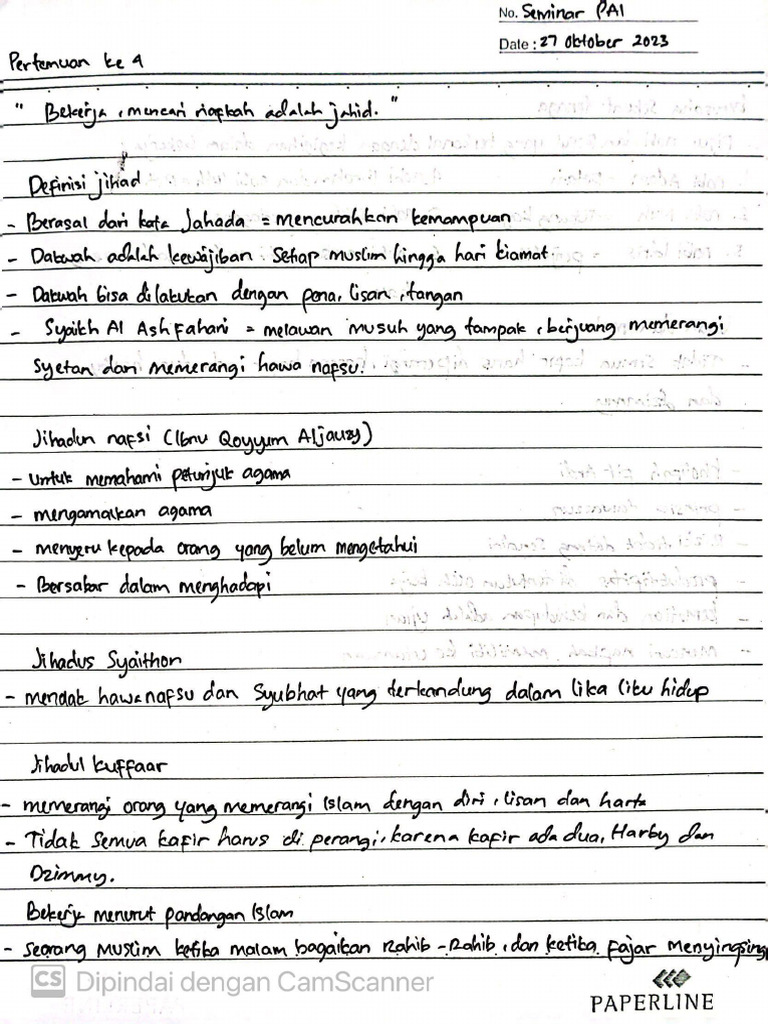 No. Seminar PAI
Date : 27 Oktober 2023
Pertemuan ke 4
" Bekerja , mencari nafkah adalah jahid. "
Definisi jihad
- Berasal dari kata Jahada = mencurahkan kemampuan
- Dakwah adalah kewajiban Setiap muslim hingga hari kiamat
- Dakwah bisa dilakukan dengan pena, lisan , tangan
- Syaikh Al Ashfahani = melawan musuh yang tampak , berjuang memerangi
syetan dan memerangi hawa nafsu.
Jihadun nafsi (Ibnu Qoyyum Aljauzy)
- untuk memahami petunjuk agama
- mengamalkan agama
- menyeru kepada orang yang belum mengetahui
- Bersabar dalam menghadapi
Jihadus Syaithon
- menolak hawa nafsu dan Syubhat yang terkandung dalam lika liku hidup
Jihadul kuffaar
- memerangi orang yang memerangi Islam dengan diri , lisan dan harta
- Tidak Semua kafir harus di perangi, karena kafir ada dua, Harby dan
Dzimmy.
Bekerja menurut pandangan Islam
- seorang muslim ketika malam bagaikan Rahib - Rahib , dan ketika fajar menyingsing
CS Dipindai dengan CamScanner
PAPERLINE